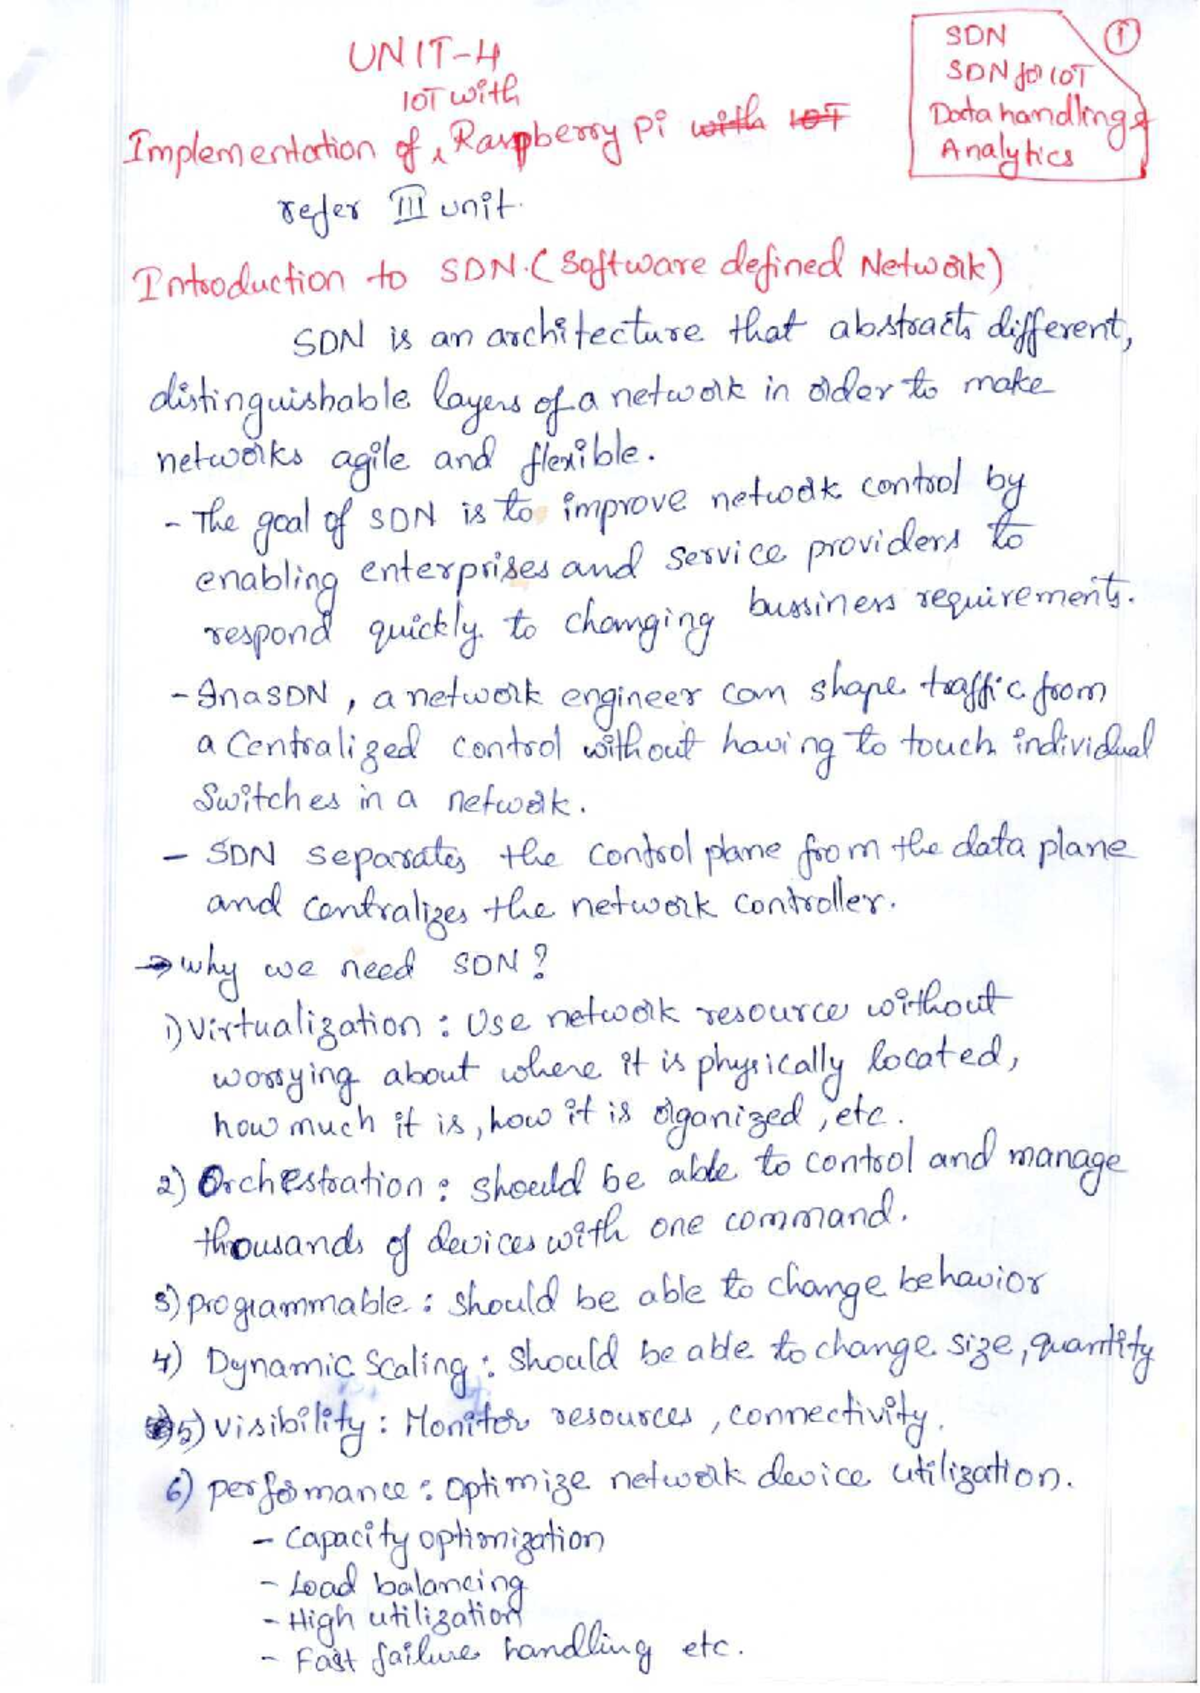 UNIT-4
SDN
SDN for IOT
Data handling &
Analytics
1
IOT with
Implementation of ^ Raspberry pi with IOT
refer III unit.
Introduction to SDN. (Software defined Network)
SDN is an architecture that abstracts different,
distinguishable layers of a network in order to make
networks agile and flexible.
- The goal of SDN is to improve network control by
enabling enterprises and service providers to
respond quickly to changing bussiness requirements.
- In a SDN, a network engineer can shape traffic from
a Centralized control without having to touch individual
Switches in a network.
- SDN separates the control plane from the data plane
and centralizes the network controller.
→ why we need SDN?
1) Virtualization : Use network resource without
worrying about where it is physically located,
how much it is, how it is organized, etc.
2) Orchestration : should be able to control and manage
thousands of devices with one command.
3) programmable : should be able to change behavior
4) Dynamic Scaling : should be able to change size, quantity
5) Visibility : Monitor resources, connectivity.
6) performance : Optimize network device utilization.
- Capacity optimization
- Load balancing
- High utilization
- Fast failure handling etc.